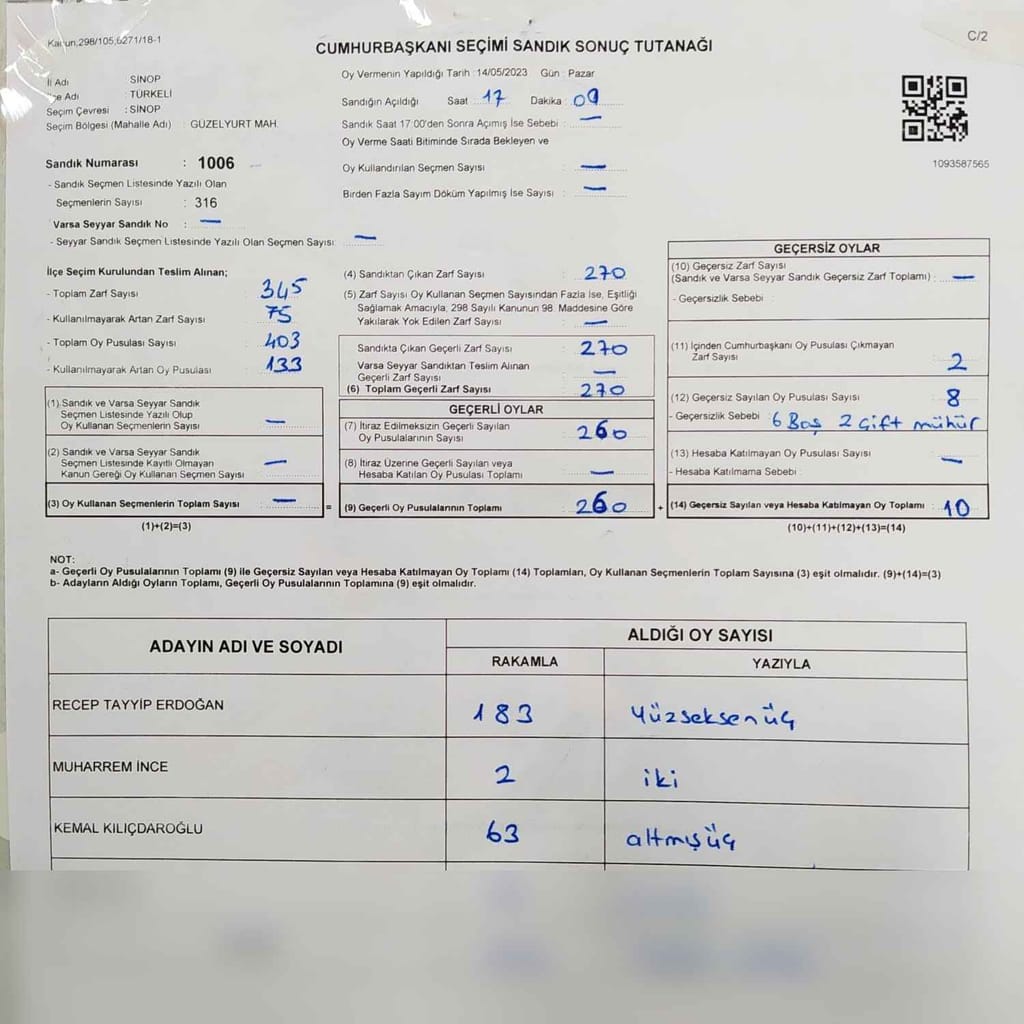 Kanun,298/105,6271/18-1
C/2
CUMHURBAŞKANI SEÇİMİ SANDIK SONUÇ TUTANAĞI
İl Adı SİNOP
İlçe Adı : TÜRKELİ
Seçim Çevresi : SİNOP
Seçim Bölgesi (Mahalle Adı) : GÜZELYURT MAH.
Sandık Numarası : 1006
- Sandık Seçmen Listesinde Yazılı Olan
Seçmenlerin Sayısı : 316
Varsa Seyyar Sandık No : —
- Seyyar Sandık Seçmen Listesinde Yazılı Olan Seçmen Sayısı: —
Oy Vermenin Yapıldığı Tarih : 14/05/2023 Gün : Pazar
Sandığın Açıldığı Saat 17 Dakika : 09
Sandık Saat 17:00'den Sonra Açımış İse Sebebi : —
Oy Verme Saati Bitiminde Sırada Bekleyen ve
Oy Kullandırılan Seçmen Sayısı —
Birden Fazla Sayım Döküm Yapılmış İse Sayısı : —
1093587565
İlçe Seçim Kurulundan Teslim Alınan;
- Toplam Zarf Sayısı 345
- Kullanılmayarak Artan Zarf Sayısı : 75
- Toplam Oy Pusulası Sayısı : 403
- Kullanılmayarak Artan Oy Pusulası : 133
(1) Sandık ve Varsa Seyyar Sandık
Seçmen Listesinde Yazılı Olup
Oy Kullanan Seçmenlerin Sayısı : —
(2) Sandık ve Varsa Seyyar Sandık
Seçmen Listesinde Kayıtlı Olmayan
Kanun Gereği Oy Kullanan Seçmen Sayısı : —
(3) Oy Kullanan Seçmenlerin Toplam Sayısı : —
(1)+(2)=(3)
=
(4) Sandıktan Çıkan Zarf Sayısı : 270
(5) Zarf Sayısı Oy Kullanan Seçmen Sayısından Fazla İse, Eşitliği
Sağlamak Amacıyla, 298 Sayılı Kanunun 98. Maddesine Göre
Yakılarak Yok Edilen Zarf Sayısı : —
Sandıkta Çıkan Geçerli Zarf Sayısı : 270
Varsa Seyyar Sandıktan Teslim Alınan
Geçerli Zarf Sayısı : —
(6) Toplam Geçerli Zarf Sayısı : 270
GEÇERLİ OYLAR
(7) İtiraz Edilmeksizin Geçerli Sayılan
Oy Pusulalarının Sayısı : 260
(8) İtiraz Üzerine Geçerli Sayılan veya
Hesaba Katılan Oy Pusulası Toplamı : —
(9) Geçerli Oy Pusulalarının Toplamı : 260
+
GEÇERSİZ OYLAR
(10) Geçersiz Zarf Sayısı
(Sandık ve Varsa Seyyar Sandık Geçersiz Zarf Toplamı) : —
- Geçersizlik Sebebi :
(11) İçinden Cumhurbaşkanı Oy Pusulası Çıkmayan
Zarf Sayısı : 2
(12) Geçersiz Sayılan Oy Pusulası Sayısı : 8
- Geçersizlik Sebebi : 6 Boş 2 Çift mühür
(13) Hesaba Katılmayan Oy Pusulası Sayısı : —
- Hesaba Katılmama Sebebi :
(14) Geçersiz Sayılan veya Hesaba Katılmayan Oy Toplamı : 10
(10)+(11)+(12)+(13)=(14)
NOT:
a- Geçerli Oy Pusulalarının Toplamı (9) ile Geçersiz Sayılan veya Hesaba Katılmayan Oy Toplamı (14) Toplamları, Oy Kullanan Seçmenlerin Toplam Sayısına (3) eşit olmalıdır. (9)+(14)=(3)
b- Adayların Aldığı Oyların Toplamı, Geçerli Oy Pusulalarının Toplamına (9) eşit olmalıdır.
ADAYIN ADI VE SOYADI
ALDIĞI OY SAYISI
RAKAMLA YAZIYLA
RECEP TAYYİP ERDOĞAN 183 Yüzseksenüç
MUHARREM İNCE 2 iki
KEMAL KILIÇDAROĞLU 63 altmışüç